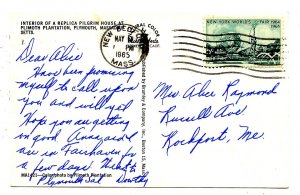 INTERIOR OF A REPLICA PILGRIM HOUSE AT
PLIMOTH PLANTATION, PLYMOUTH, MASSACHU-
SETTS.
NEW BEDFORD
MAY
PM
1965
MASS.
NEW YORK WORLD'S FAIR 1964
1965
Dear Alice
Have been promising
myself to call upon
you and not willed
Hope you are getting
in good. Anna and I
are in Fairhaven for
a few days. Went to
Plymouth Sat Dorothy
MA1023—Color photo by Plimoth Plantation
Mrs Alice Raymond
Russell Ave
Rockport, Me